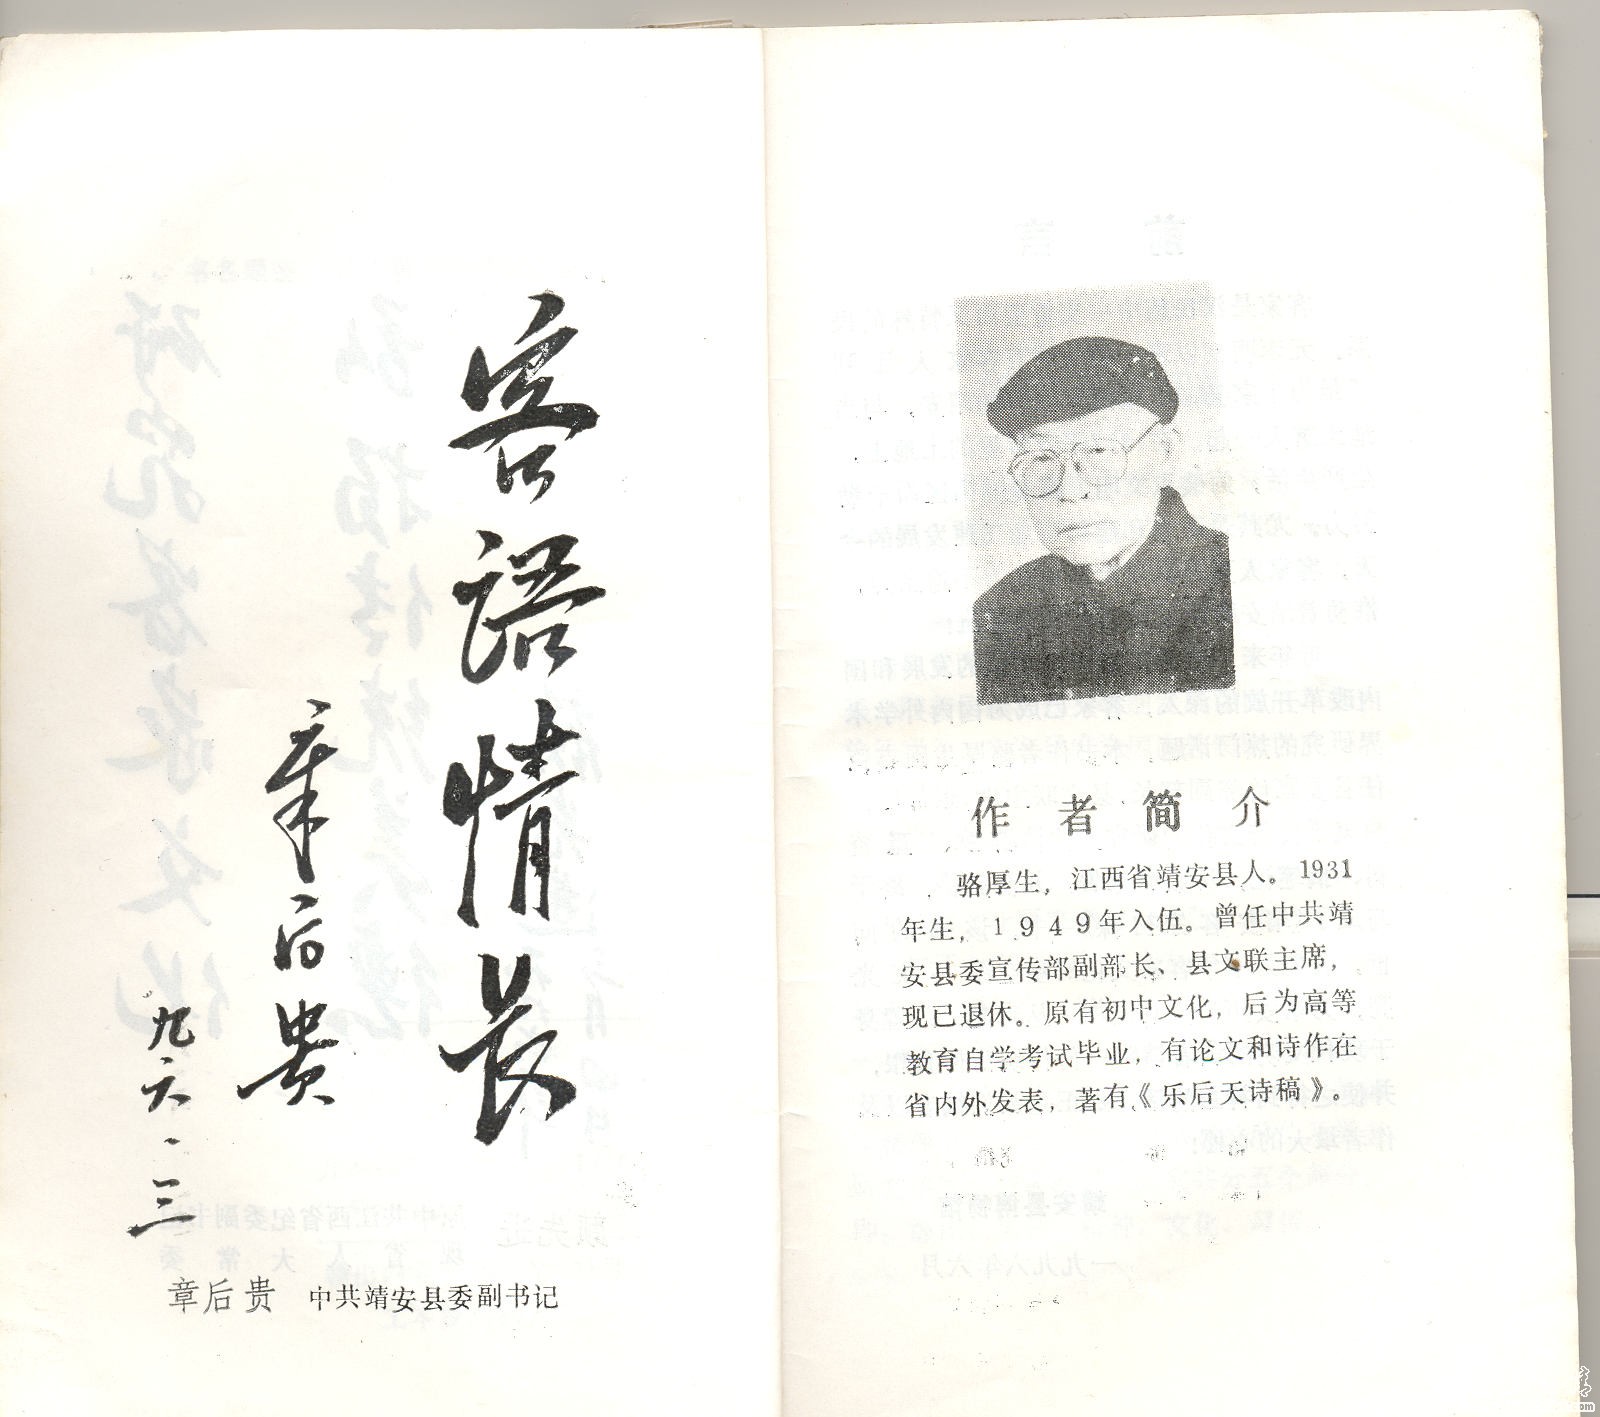 客语情长
章后贵
九六·三
章后贵 中共靖安县委副书记
作者简介
骆厚生，江西省靖安县人。1931
年生，1949年入伍。曾任中共靖
安县委宣传部副部长、县文联主席，
现已退休。原有初中文化，后为高等
教育自学考试毕业，有论文和诗作在
省内外发表，著有《乐后天诗稿》。